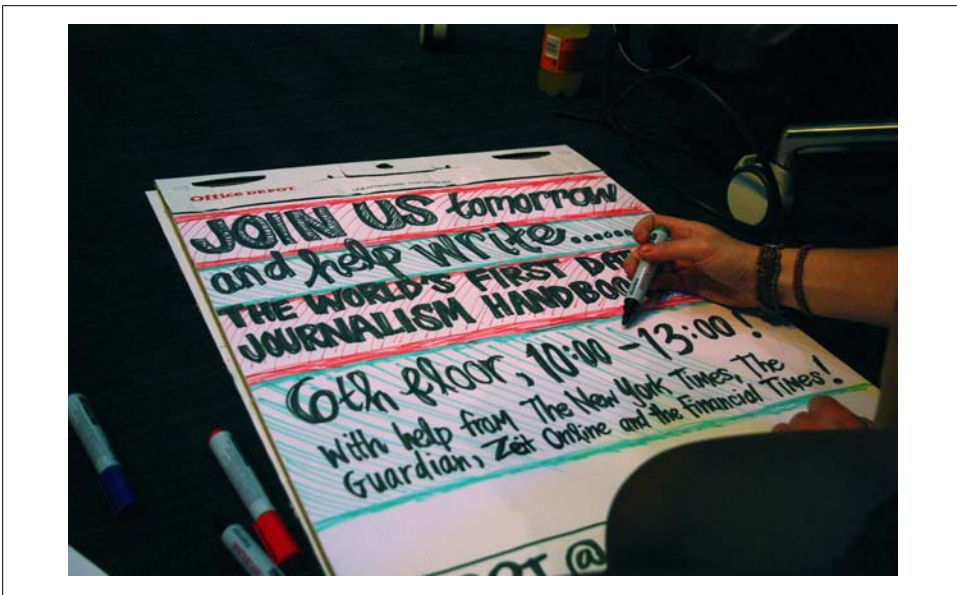 Office DEPOT
JOIN US tomorrow
and help write.......
THE WORLD'S FIRST DATA
JOURNALISM HANDBOO
6th floor, 10:00 - 13:00!
with help from The New York Times, The
Guardian, Zeit Online and the Financial Times!
@